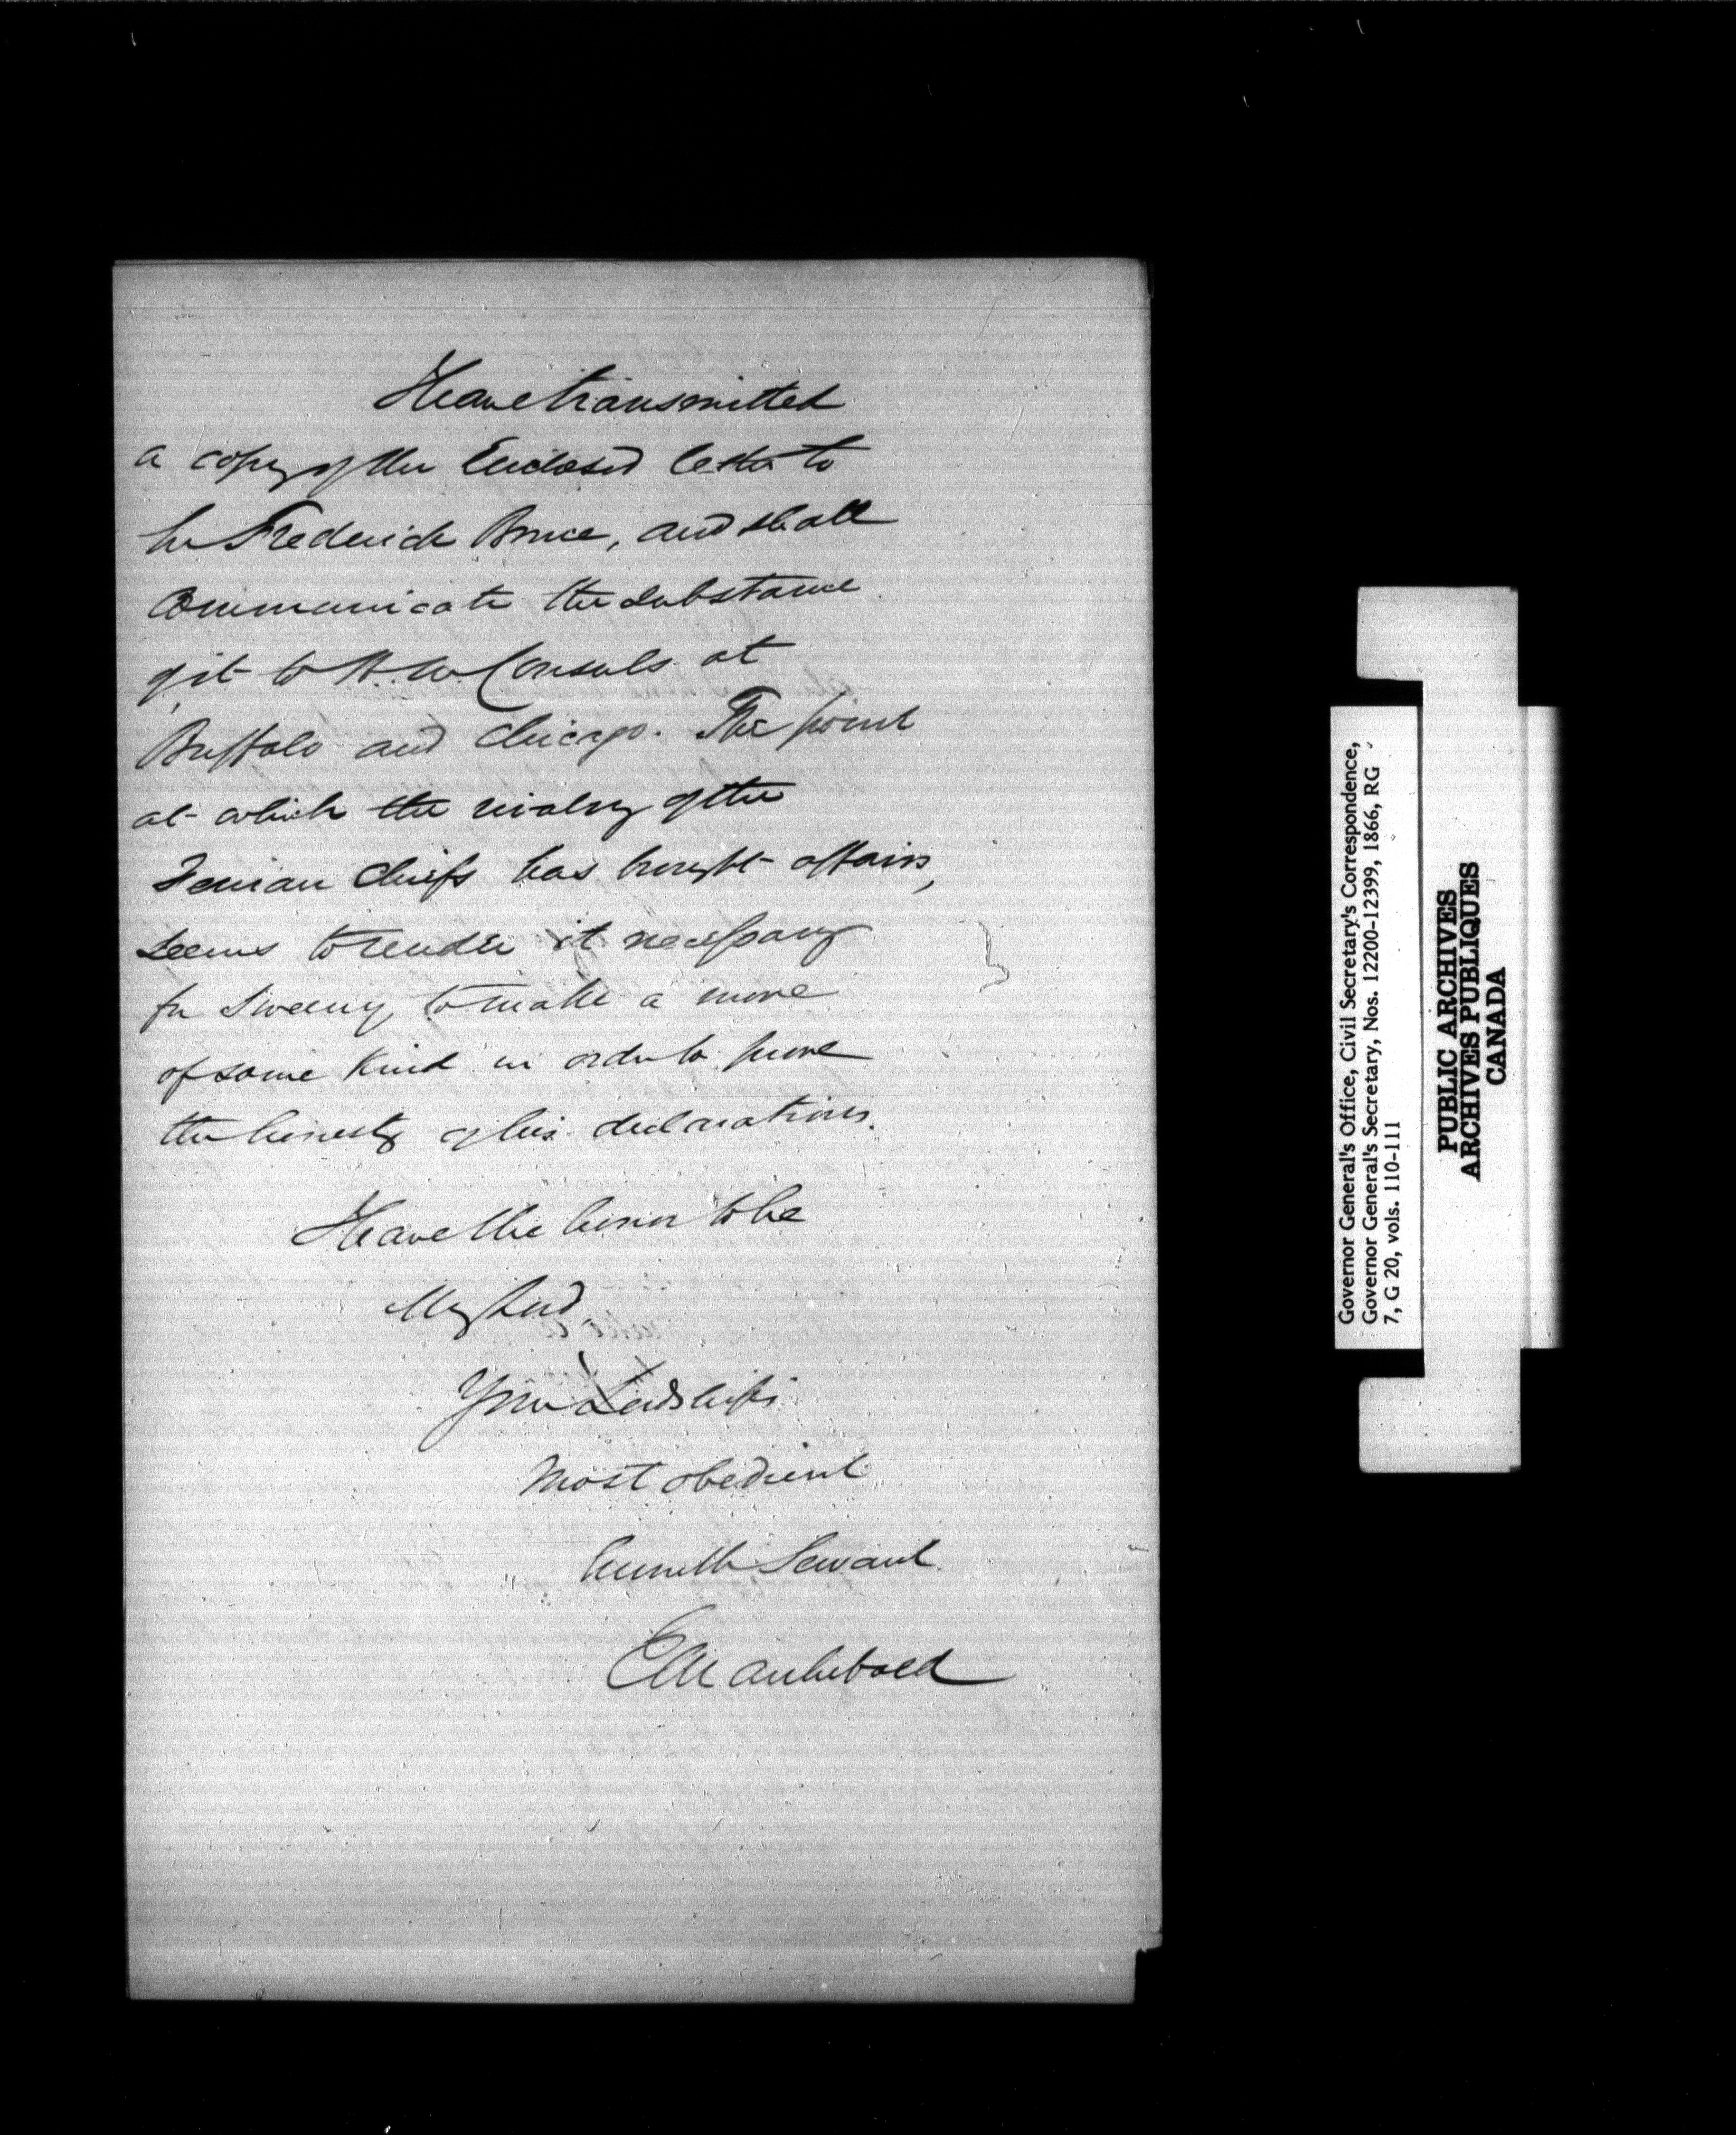 I have transmitted
a copy of the Enclosed letter to
Sir Frederick Bruce, and shall
Communicate the substance
of it to H. M. Consuls at
Buffalo and Chicago. The point
at which the rivalry of the
Fenian Chiefs has brought affairs,
seems to render it necessary
for Sweeny to make a move
of some kind in order to prove
the honesty of his declarations.
I have the honor to be
My Lord
Your Lordship's
Most obedient
humble Servant
E M Archibald
Governor General's Office, Civil Secretary's Correspondence,
Governor General's Secretary, Nos. 12200-12399, 1866, RG
7, G 20, vols. 110-111
PUBLIC ARCHIVES
ARCHIVES PUBLIQUES
CANADA